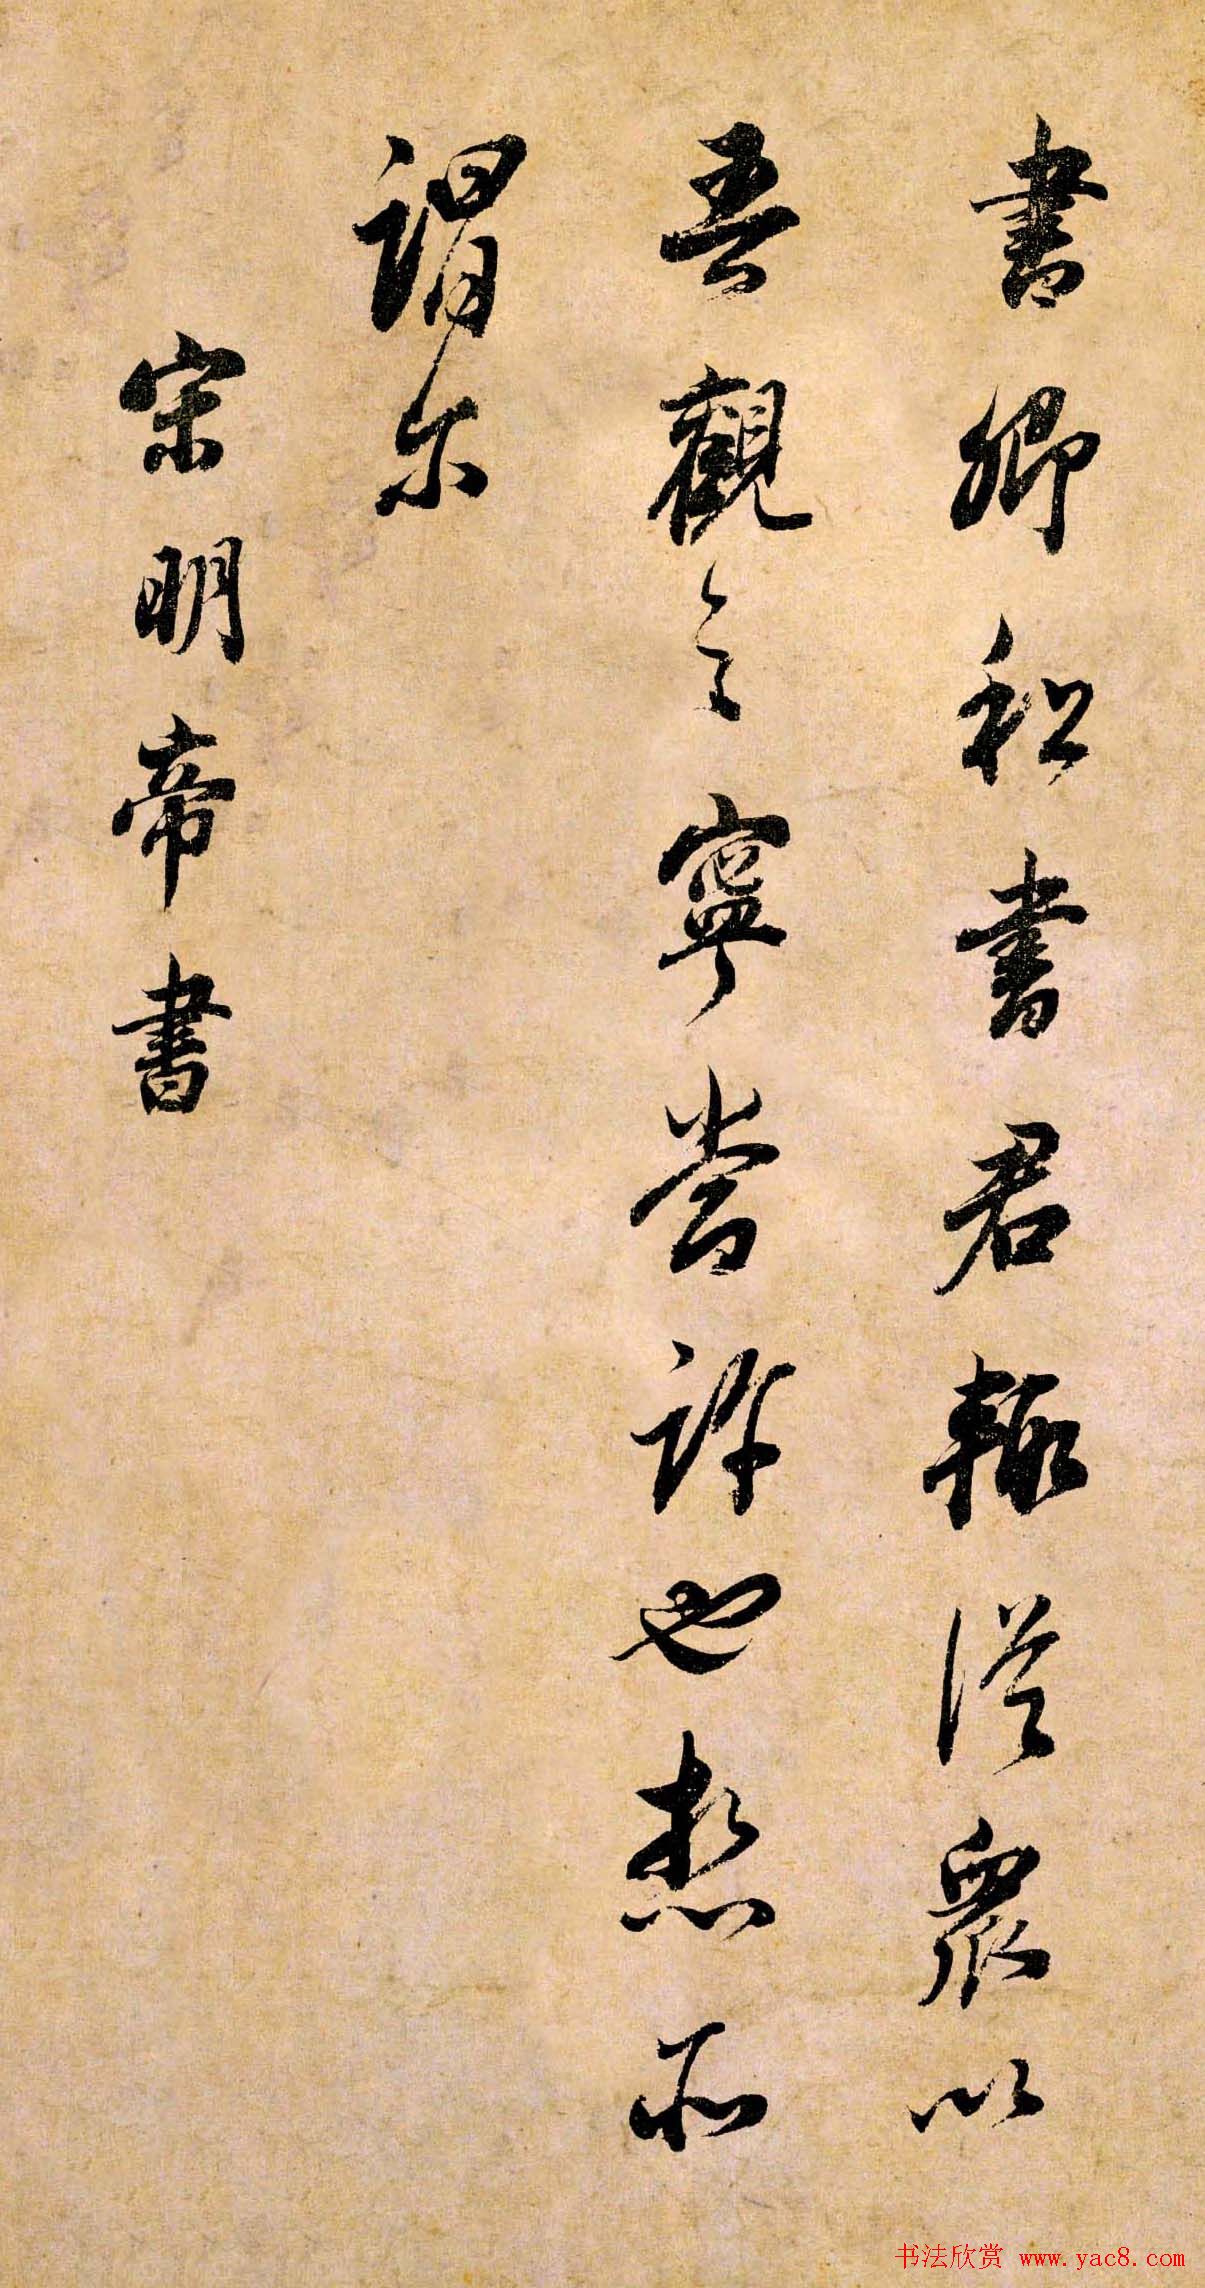 書卿和書君輙從眾以
吾觀寧嘗許也想所
謂尔
宋明帝書
书法欣赏 www.yac8.com